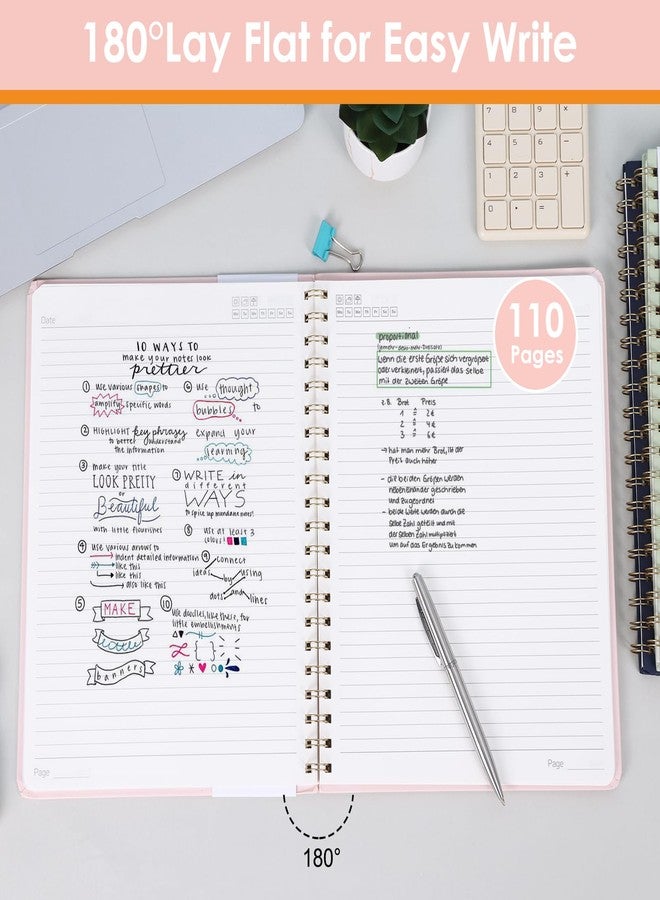 180°Lay Flat for Easy Write
7 8 9 ×
4 5 6 -
1 2 3 +
0 • =
110
Pages
Date
Mo Tu We Th Fr Sa Su
10 WAYS TO
make your notes look
prettier
① Use various shapes to
amplify specific words
② HIGHLIGHT key phrases
to better understand
the information
③ make your title
LOOK PRETTY
or
Beautiful
with little flourishes
④ Use various arrows to
indent detailed information
like this
like this
also like this
⑤ MAKE
little
banners
⑥ Use thought
bubbles to
expand your
learning
⑦ WRITE in
different
WAYS
to spice up mundane notes!
⑧ use at least 3
colours!
⑨ connect
ideas by using
dots and lines
⑩ Use doodles, like these, for
little embellishments
Page
Mo Tu We Th Fr Sa Su
proportional
wenn die erste Größe sich vergrößert
oder verkleinert, passiert das selbe
mit der zweiten Größe
z.B. Brot Preis
1 ≙ 2€
2 ≙ 4€
3 ≙ 6€
→ hat man mehr Brot, ist der
Preis auch höher
- die beiden Größen werden
nebeneinander geschrieben
und zugeordnet
- beide Werte werden durch die
selbe Zahl geteilt und mit
der selben Zahl multipliziert
um auf das Ergebnis zu kommen
Page
180°